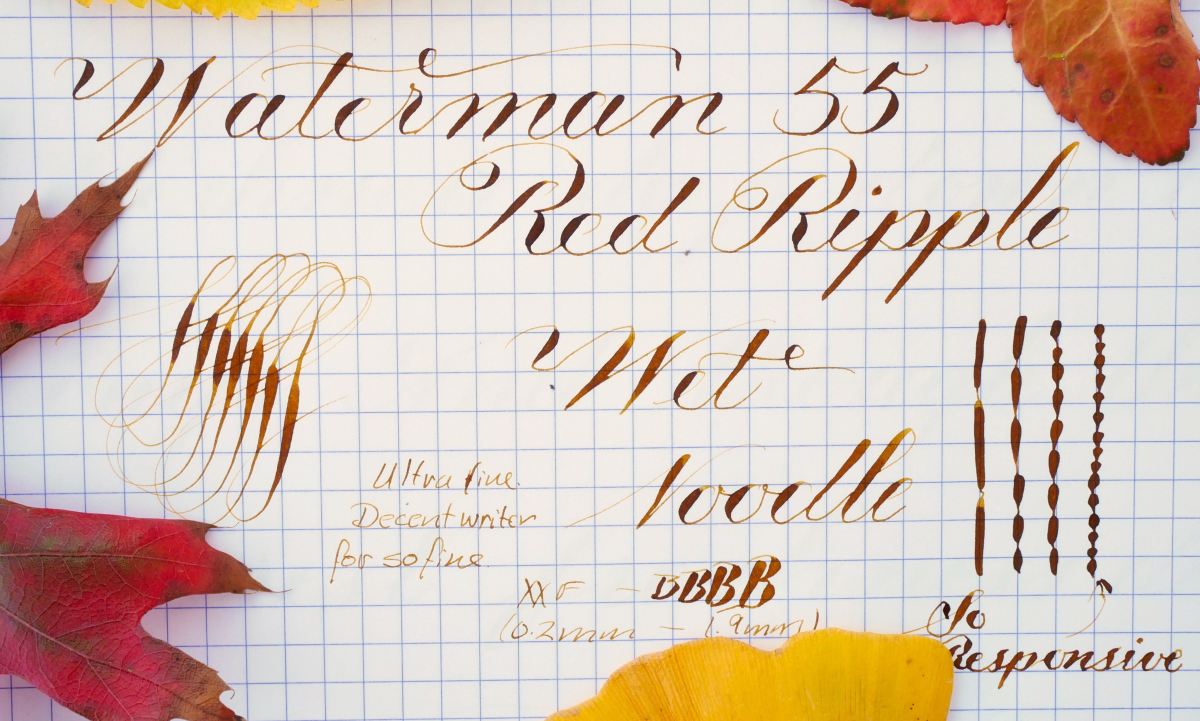 Waterman 55
Red Ripple
Wet
Noodle
Ultra fine.
Decent writer
for so fine.
XXF - BBBB
(0.2mm - 1.9mm)
So
Responsive